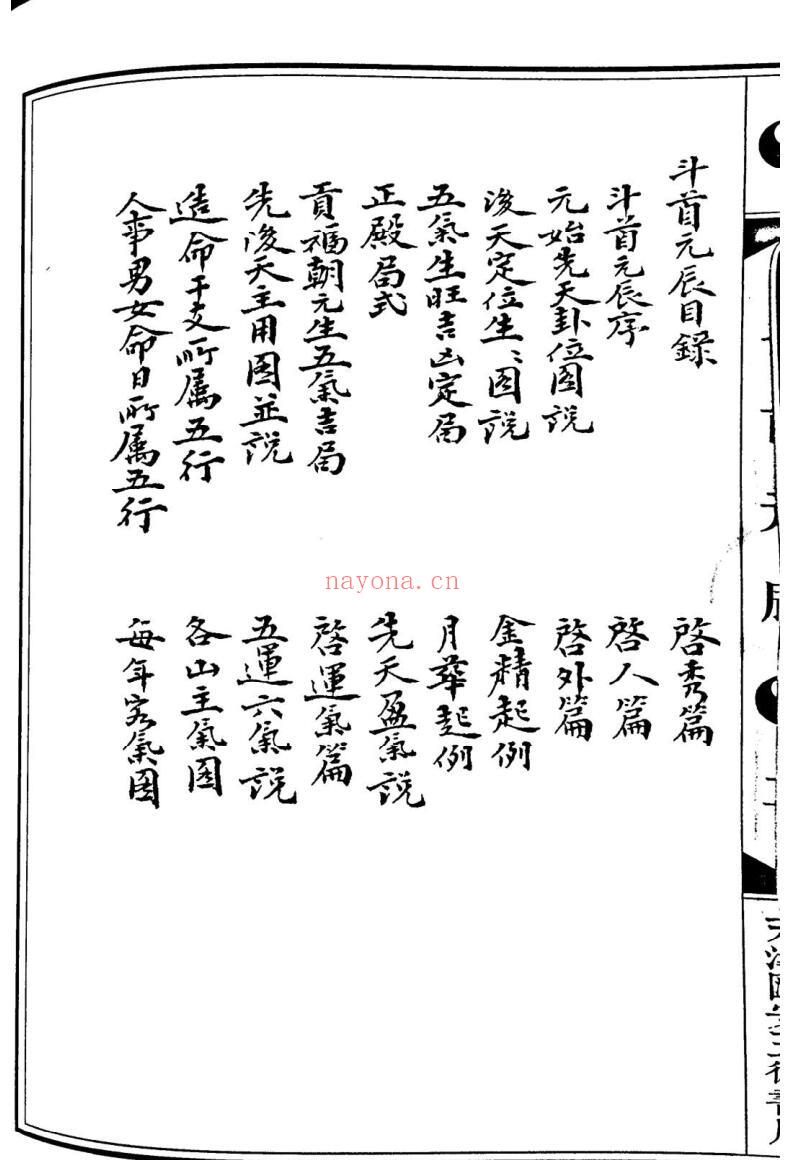 斗首元辰目錄
斗首元辰序
元始先天卦位圖説
後天定位生〻圖説
五氣生旺吉凶定局
正殿局式
貢福朝元生五氣吉局
先後天主用圖並説
造命干支所屬五行
人事男女命日所屬五行
啓秀篇
啓人篇
啓外篇
金精起例
月華起例
先天盈氣説
啓運氣篇
五運六氣説
各山主氣圖
每年客氣圖
nayona.cn